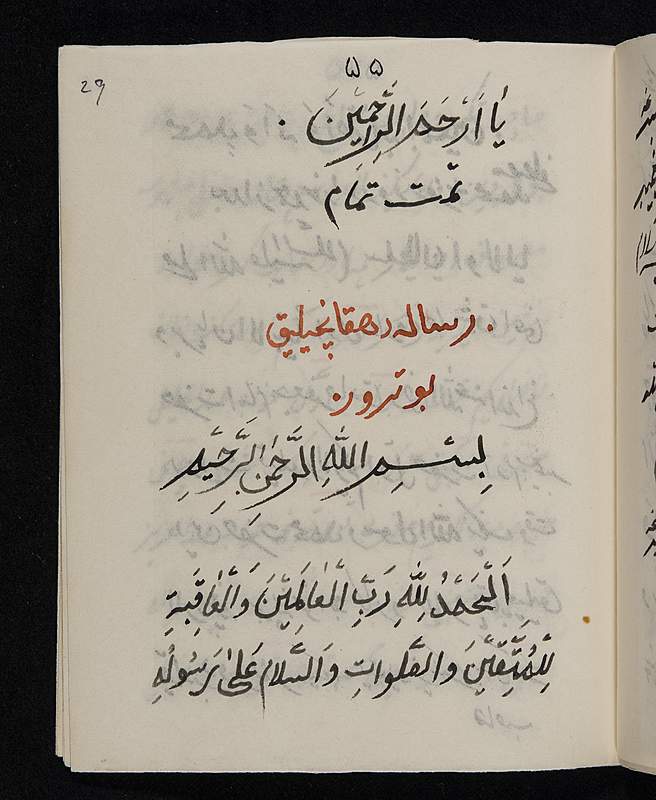 ۵۵
29
یا اَرْحَمَ الرَّاحِمِیْنَ .
تمت تمام
. رساله دهقانچیلیق
بو ترور .
بِسْمِ اللّٰهِ الرَّحْمٰنِ الرَّحِیْمِ
اَلْحَمْدُ لِلّٰهِ رَبِّ الْعَالَمِیْنَ وَالْعَاقِبَةِ
لِلْمُتَّقِیْنَ وَالصَّلَواتِ وَالسَّلَامِ عَلٰی رَسُولِهِ